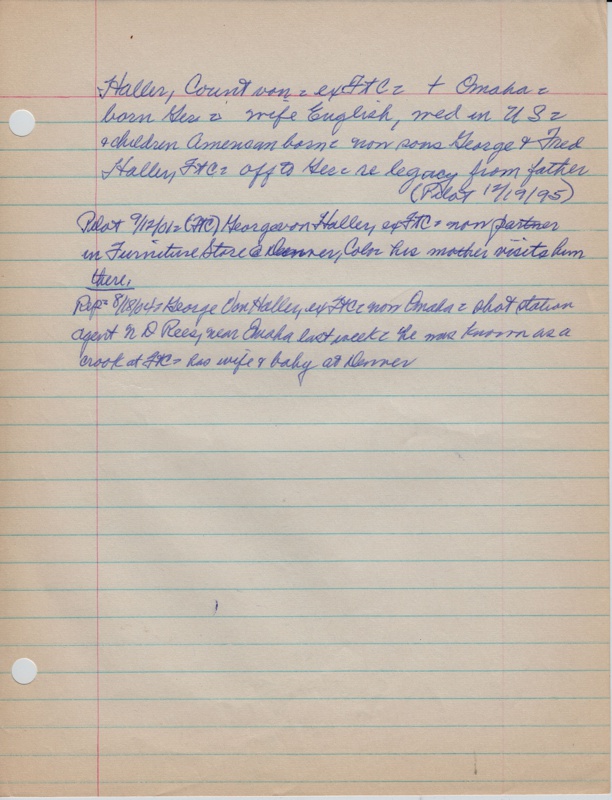 Haller, Count von = ex Ft C = + Omaha =
born Ger = wife English, wed in U S =
+ children American born = now sons George + Fred
Haller, Ft C = off to Ger = re legacy from father
(Pilot 12/19/95)
Pilot 9/12/01 = (Ft C) George von Haller, ex Ft C = now partner
in Furniture Store @ Denver, Colo = his mother visits him
there.
Rep = 8/18/04 = George Von Haller, ex Ft C = now Omaha = shot station
agent N D Rees, near Omaha last week = he was known as a
crook at Ft C = has wife + baby at Denver